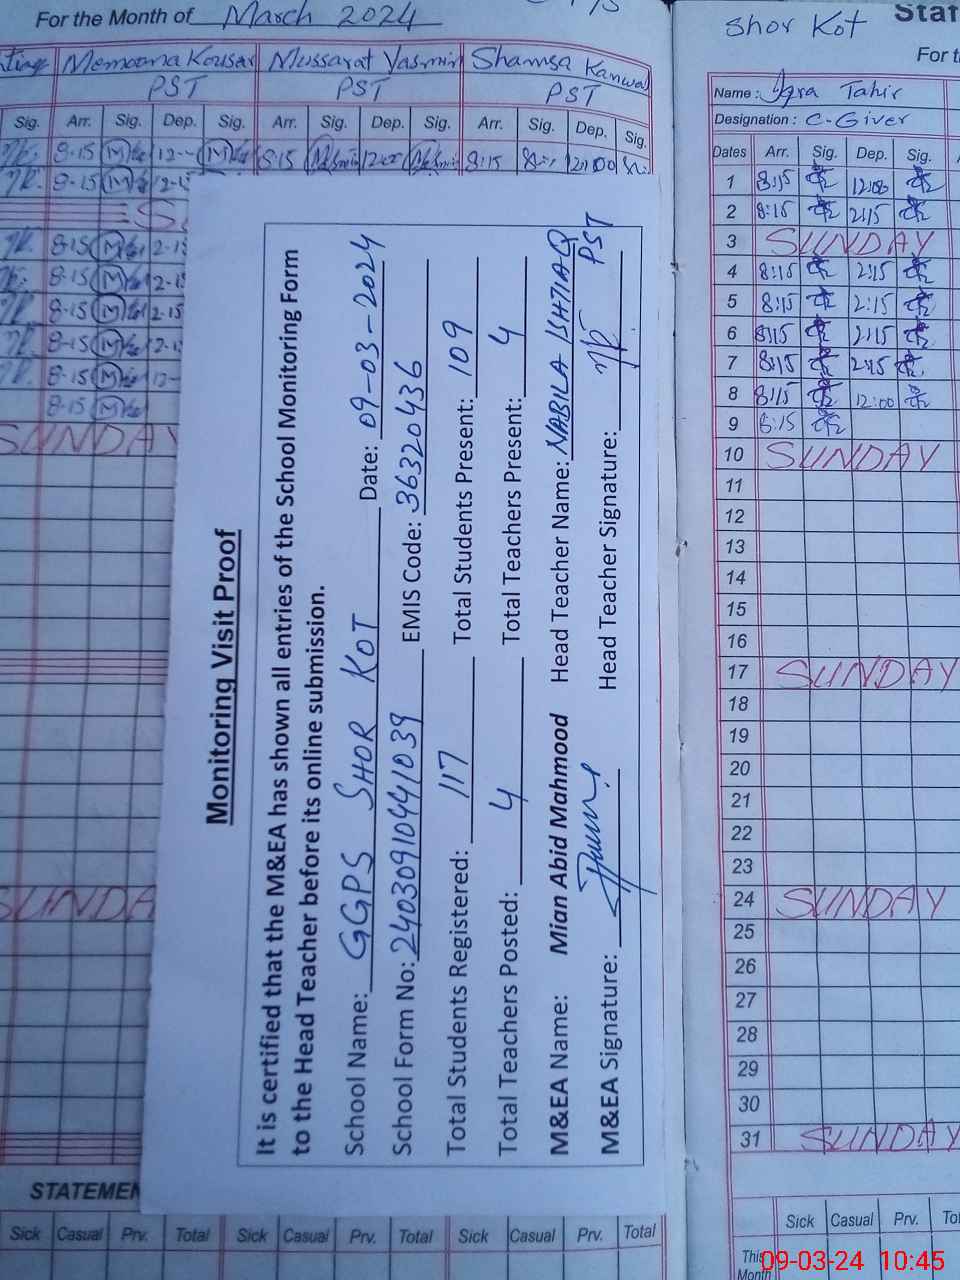 For the Month of March 2024
Memoona Kousar Mussarat Yasmin Shamsa Kanwal
PST PST PST
Sig. Arr. Sig. Dep. Sig. Arr. Sig. Dep. Sig. Arr. Sig. Dep. Sig.
8-15 12-- 8:15 12:00 8:15 12:00
8-15 12-15
8-15 2-15
8-15 2-1
8-15 2-15
8-15 2-1
8-15 12-
8-15
SUNDAY
SUNDA
STATEMEN
Sick Casual Prv. Total Sick Casual Prv. Total Sick Casual Prv. Total
Monitoring Visit Proof
It is certified that the M&EA has shown all entries of the School Monitoring Form
to the Head Teacher before its online submission.
School Name: GGPS SHOR KOT Date: 09-03-2024
School Form No: 24030910441039 EMIS Code: 36320436
Total Students Registered: 117 Total Students Present: 109
Total Teachers Posted: 4 Total Teachers Present: 4
M&EA Name: Mian Abid Mahmood Head Teacher Name: NABILA ISHTIAQ
M&EA Signature: Head Teacher Signature: PST
Shor Kot Staf
For t
Name: Iqra Tahir
Designation: C-Giver
Dates Arr. Sig. Dep. Sig.
1 8:15 12:00
2 8:15 2:15
3 SUNDAY
4 8:15 2:15
5 8:15 2:15
6 8:15 2:15
7 8:15 2:15
8 8:15 12:00
9 8:15
10 SUNDAY
11
12
13
14
15
16
17 SUNDAY
18
19
20
21
22
23
24 SUNDAY
25
26
27
28
29
30
31 SUNDAY
Sick Casual Prv. To
This
Month
09-03-24 10:45